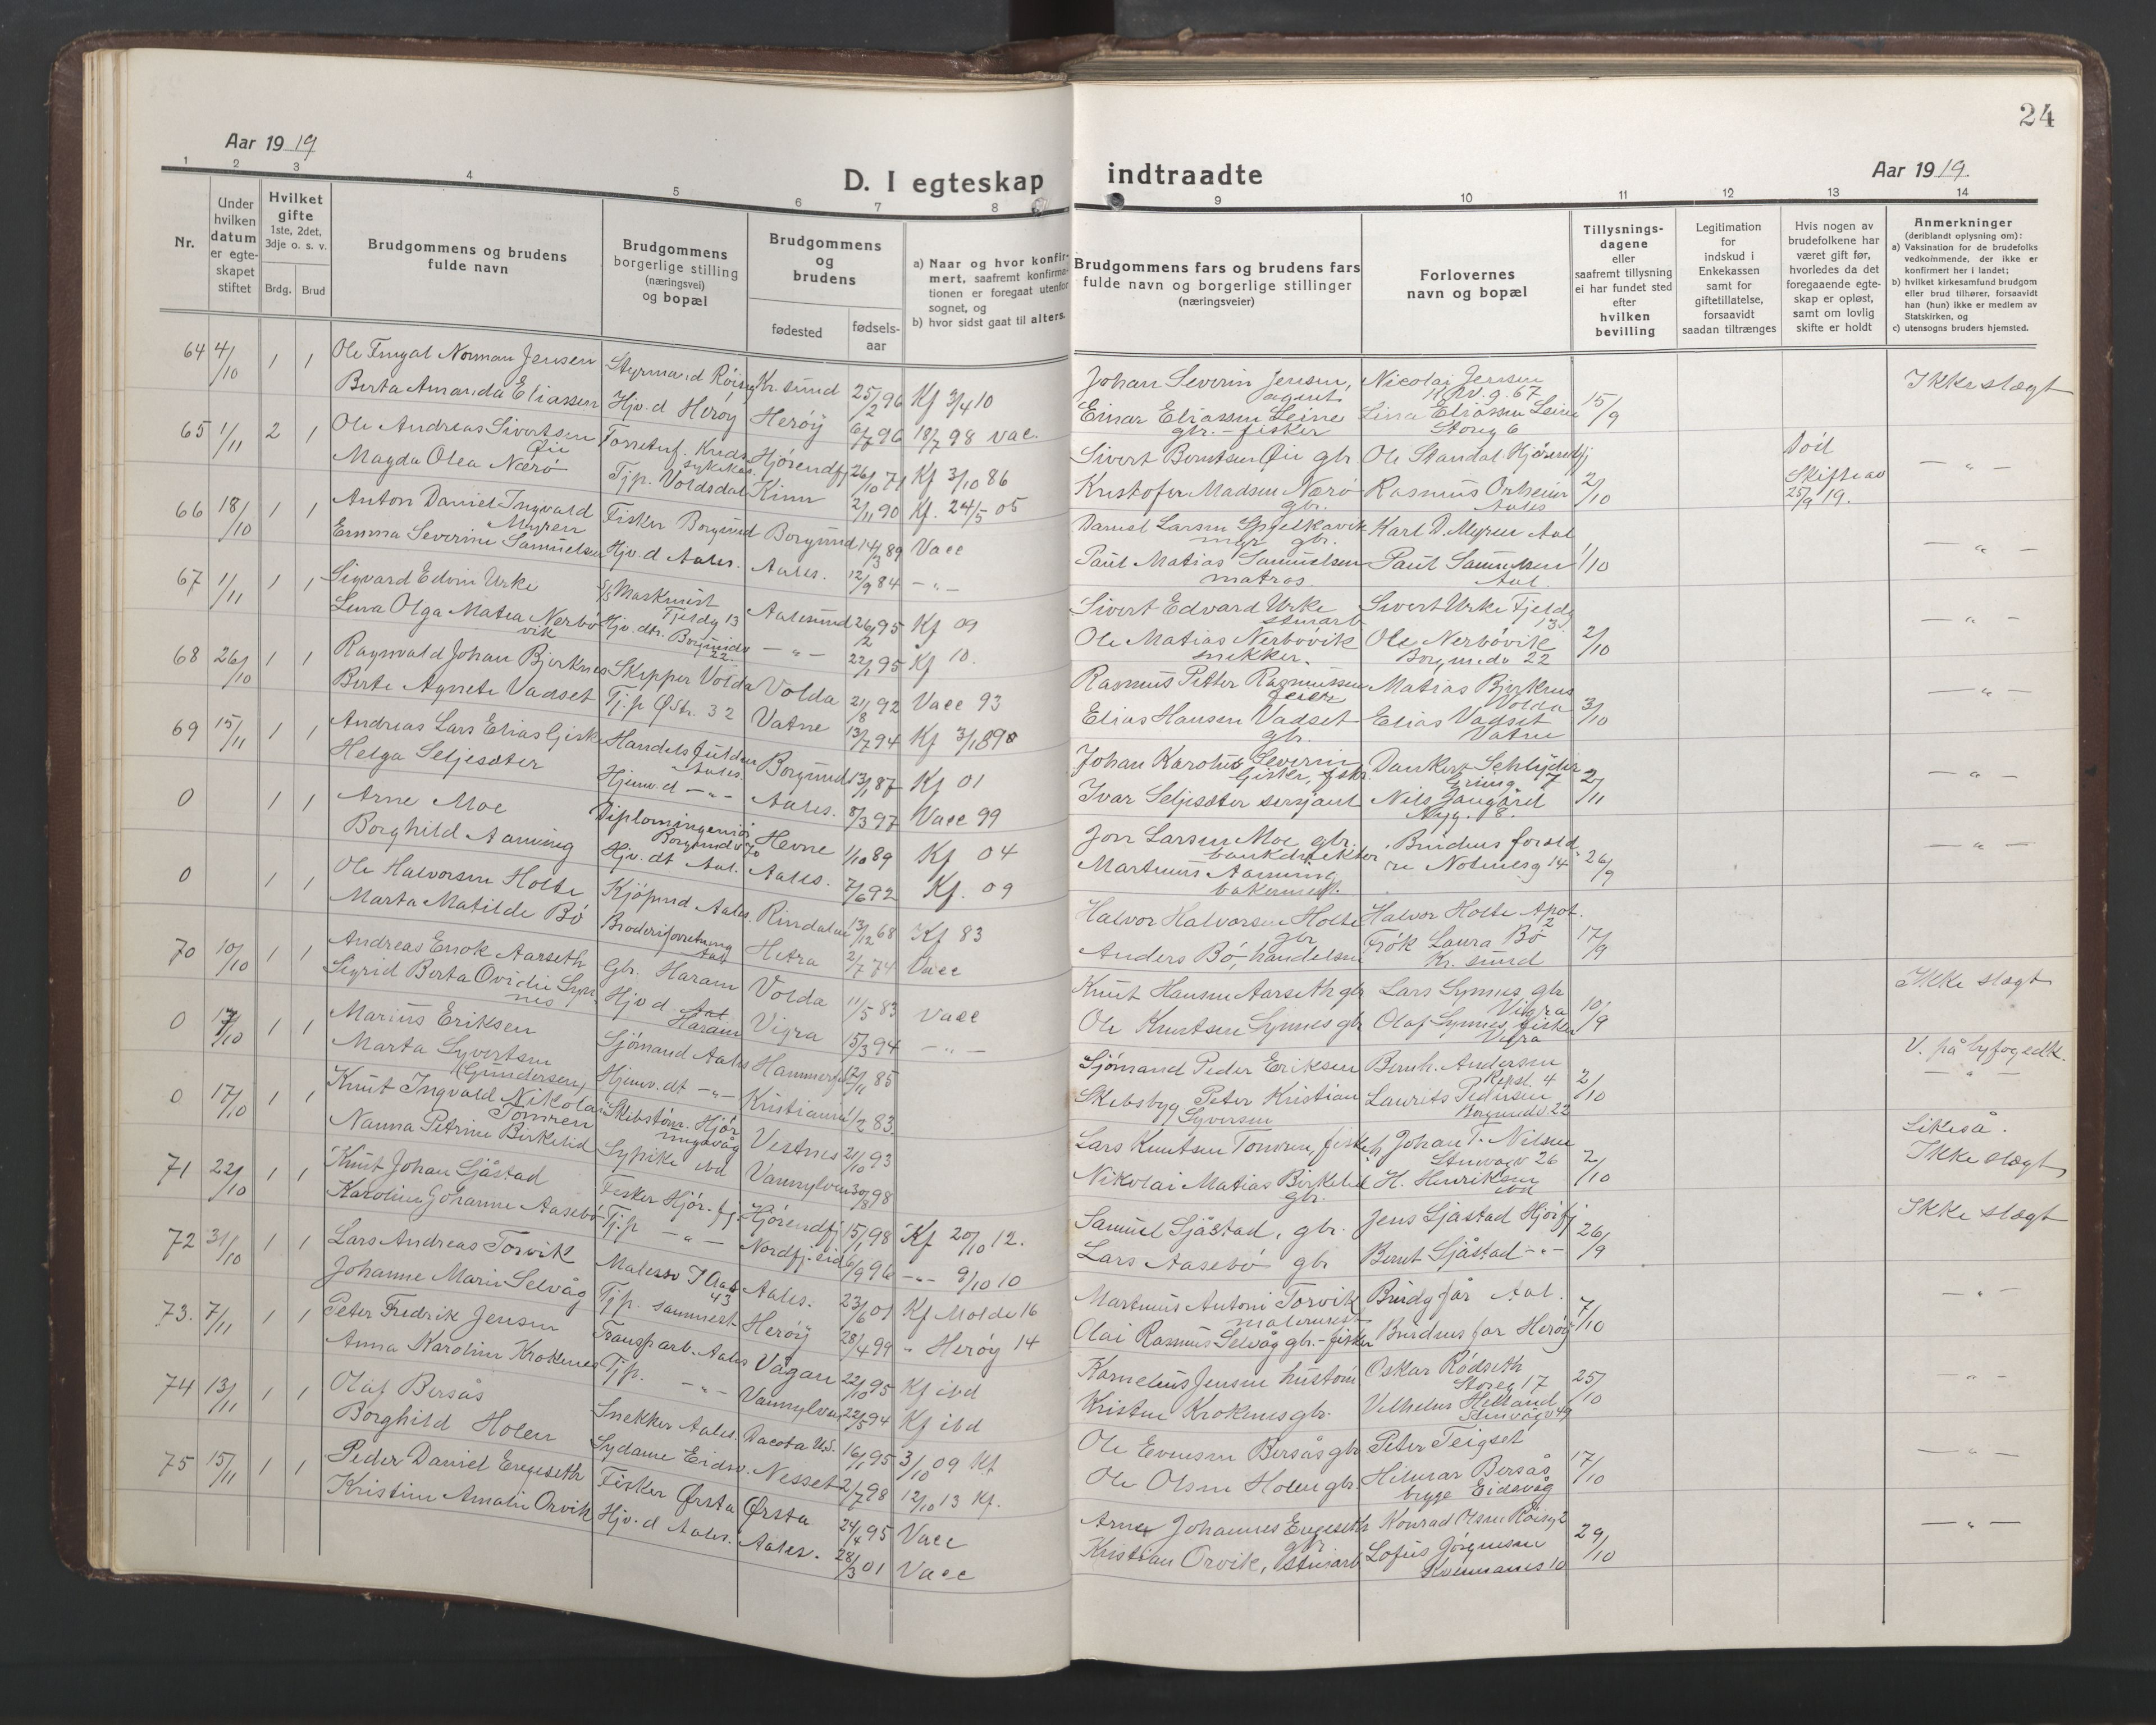 24
Aar 1919
Aar 1919.
D. I egteskap indtraadte
1 2 3 4 5 6 7 8 9 10 11 12 13 14
Nr.
Under hvilken datum er egteskapet stiftet
Hvilket gifte
1ste, 2det, 3dje o. s. v.
Brdg. Brud
Brudgommens og brudens fulde navn
Brudgommens borgerlige stilling (næringsvei) og bopæl
Brudgommens og brudens
fødested
fødselsaar
a) Naar og hvor konfirmert, saafremt konfirmationen er foregaat utenfor sognet, og
b) hvor sidst gaat til alters.
Brudgommens fars og brudens fars fulde navn og borgerlige stillinger (næringsveier)
Forlovernes navn og bopæl
Tillysningsdagene eller saafremt tillysning ei har fundet sted efter hvilken bevilling
Legitimation for indskud i Enkekassen samt for giftetillatelse, forsaavidt saadan tiltrænges
Hvis nogen av brudefolkene har været gift før, hvorledes da det foregaaende egteskap er opløst, samt om lovlig skifte er holdt
Anmerkninger
(deriblandt oplysning om):
a) Vaksination for de brudefolks vedkommende, der ikke er konfirmert her i landet;
b) hvilket kirkesamfund brudgom eller brud tilhører, forsaavidt han (hun) ikke er medlem av Statskirken, og
c) utensogns bruders hjemsted.
64 4/10 1 1 Ole Fingal Norman Jensen Styrmand Kr.sund 25/2 96 Kf 3/4 10 Johan Severin Jensen, agent Nicolai Jensen 15/9 Ikke slægt
Berta Amanda Eliassen Hjv.d Herøy Herøy 6/7 96 18/7 98 vac. Einar Eliassen Leine gbr.-fisker Eliassen Leine Storg 6
65 1/11 2 1 Ole Andreas Sivertsen Øie Hjørendfj 26/10 71 Kf 3/10 86 Sivert Berntsen Øie gbr. Ole Standal Hjørendfj 2/10 Död Skifte av 25/9 19. - " -
Magda Olea Nærö Tjp. Voldsdal Kinn 2/11 90 Kf. 24/5 05 Kristofer Madsen Nærö gbr. Rasmus Orheim Aales
66 18/10 1 1 Anton Daniel Ingvald Myren Fisker Borgund Borgund 14/3 89 Vacc Daniel Larsen Spjelkavik gbr. Karl D. Myren Aal 1/10 - " -
Emma Severine Samuelsen Hjv.d Aales. Aales. 12/9 84 - " - Paul Matias Samuelsen matros Paul Samuelsen Aal.
67 1/11 1 1 Sigvard Edvin Urke Maskinist Fjeldg 13 Aalesund 26/12 95 Kf 09 Sivert Edvard Urke Sivert Urke Fjeldg 13 2/10 - " -
Lena Olga Matea Nerbövik Hjv.dtr. Borgundv 22. - " - 22/1 95 Kf 10. Ole Matias Nerbövik snekker. Ole Nerbövik Borgundv 22
68 26/10 1 1 Ragnvald Johan Bjerknes Skipper Volda Volda 21/8 92 Vacc 93 Rasmus Petter Rasmussen Matias Bjerknes Volda 3/10 - " -
Berte Agnete Vadset Tj.p Østr. 32 Vatne 13/7 94 Kf Elias Hansen Vadset gbr. Elias Vadset Vatne
69 15/11 1 1 Andreas Lars Elias Giske Aales. Borgund 13/1 87 Kf 01 Johan Karolus Severin Giske, fisk. Dankert 2/11 - " -
Helga Seljesæter Hjemv.d - " - Aales. 8/3 97 Vacc 99 Ivar Seljesæter sersjant Nils
0 1 1 Arne Moe Diplomingeniør Borgundv 70 Hevne 1/10 89 Kf 04 Jon Larsen Moe gbr. Brudens foreldre Notenesg 14 26/9 - " -
Borghild Aarning Hjv.dt Aal. Aales. 7/6 92 Kf. 09 Martinus Aarning bakermest.
0 1 1 Ole Halvorsen Holte Kjöpmd Aales. Rindalen 13/12 68 Kf 83 Halvor Halvorsen Holte gbr Halvor Holte Apot. 2 17/9
Marta Matilde Bö Broderiforretning Aal Hitra 2/7 74 Vacc Anders Bö, handelsm Frök Laura Bö Kr.sund
70 10/10 1 1 Andreas Enok Aarseth Gbr. Haram Volda 11/5 83 Vacc Knut Hansen Aarseth gbr Lars Synnes gbr Vigra 10/9 Ikke slægt
Sigrid Berta Ovidie Synnes Hjv.d Haram Vigra 15/3 94 - " - Ole Knutsen Synnes gbr Olaf Synnes, fisker Vigra
0 17/10 1 1 Marius Eriksen Sjömand Aales Hammerfest 12/11 85 Sjömand Peder Eriksen Bernh. Andersen Repsl. 4 2/10 V. på byfogedk.
Marta Syvertsen (Gundersen) Hjemv.dt - " - Kristiania 1/2 83 Skibsbyg Peter Kristian Syversen Laurits Pedersen Borgundv 22 - " -
0 17/10 1 1 Knut Ingvald Nikolai Tomren Skibstömr. Hjör Vestnes 21/10 93 Lars Knutsen Tomren, fisker Johan T. Nilsen 26 2/10 Likeså.
Nanna Petrine Birkelid Sypike ibd Vannylven 30/8 98 Nikolai Matias Birkelid gbr. H. Henriksen ibd Ikke slægt
71 22/10 1 1 Knut Johan Sjåstad Fisker Hjör.fj Hjörendfj 15/1 98 Kf 20/10 12. Samuel Sjåstad, gbr. Jens Sjåstad Hjörfj 26/9 Ikke slægt
Karoline Johanne Aasebö Tj.p - " - Nordfj.eid 6/9 96 - " - 9/10 10 Lars Aasebö gbr Bernt Sjåstad - " -
72 31/10 1 1 Lars Andreas Torvik 43 Aales. 23/6 01 Kf Molde 16 Martinus Antoni Torvik malermest Brudg far Aal. 7/10 - " -
Johanne Marie Selvåg Tjp. sammest Herøy 28/4 99 " Herøy 14 Olai Rasmus Selvåg gbr.-fisker Brudens far Herøy
73. 7/11 1 1 Peter Fredrik Jensen Transparb. Aales Vågan 22/10 95 Kf ibd Kornelius Jensen Oskar Rödseth Storg 17 25/10 - " -
Anna Karoline Krokenes Tjp. - " - Vannylven 22/5 94 Kf ibd Kristen Krokenes gbr. Vilhelm Helland
74 13/11 1 1 Olaf Bersås Snekker Aales. Dacota U.S. 16/1 95 3/10 09 Kf Ole Evensen Bersås gbr Peter Teigset 17/10 - " -
Borghild Holen Sydame Eidsv. Nesset 2/7 98 12/10 13 Kf. Ole Olsen Holen gbr. Hilmar Bersås brygge Eidsvåg
75 15/11 1 1 Peder Daniel Engeseth Fisker Ørsta Ørsta 24/4 95 Vacc Arne Johannes Engeseth gbr. Konrad Olsen Röisg 2 29/10 - " -
Kristine Amalie Orvik Hjv.d Aales. Aales. 28/3 01 Vacc Kristian Orvik, Lofus Jörgensen 10